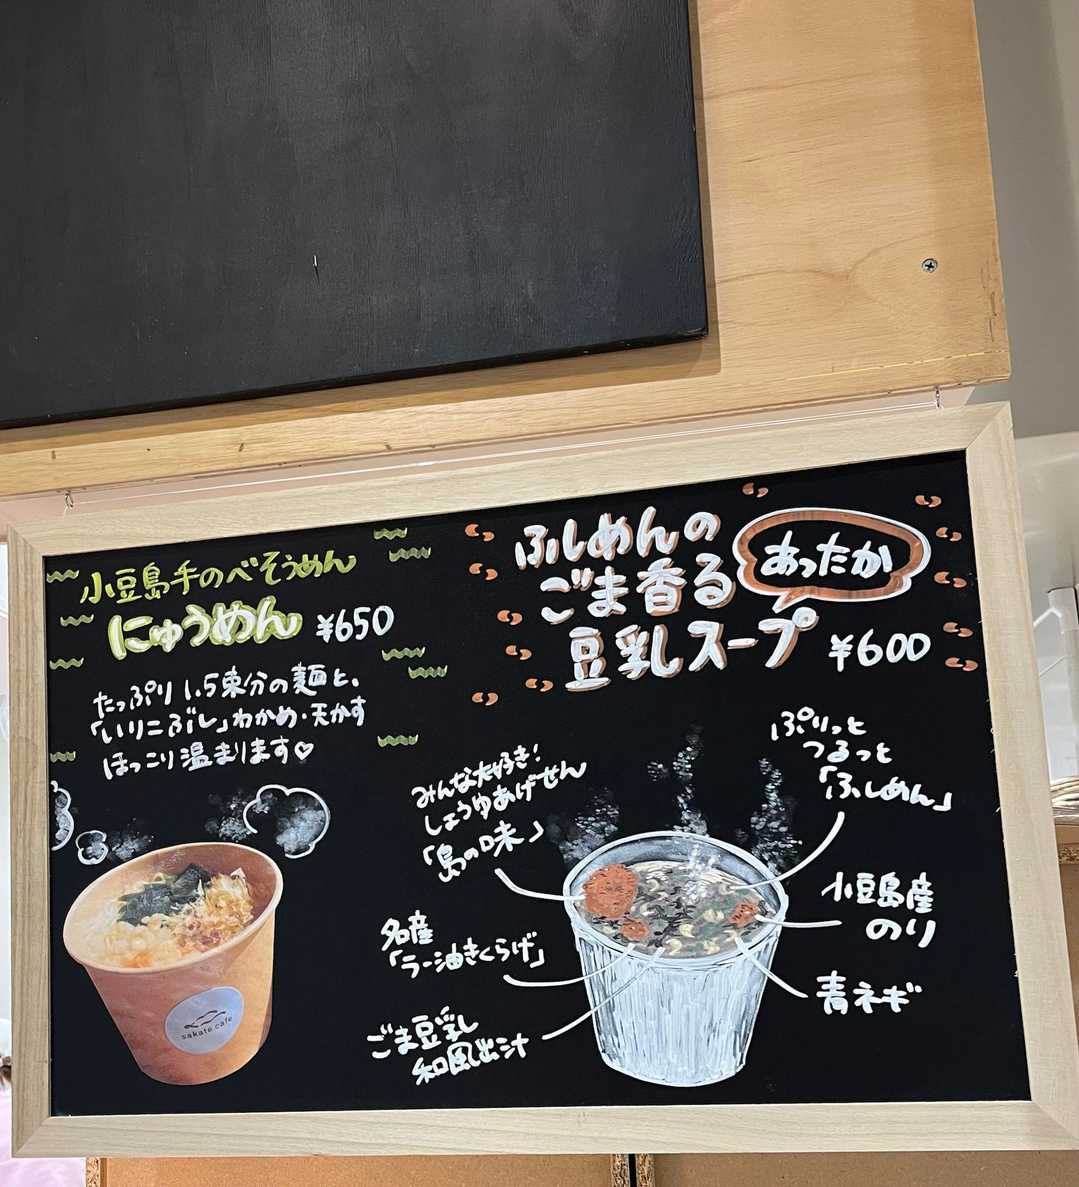 小豆島手のべそうめん
にゅうめん ¥650
たっぷり1.5束分の麺と、
「いりこぶし」わかめ・天かす
ほっこり温まります♡
sakate cafe
ふしめんの
ごま香る
豆乳スープ ¥600
あったか
みんな大好き!
しょうゆあげせん
「島の味」
名産
「ラー油きくらげ」
ごま豆乳
和風出汁
ぷりっと
つるっと
「ふしめん」
小豆島産
のり
青ネギ